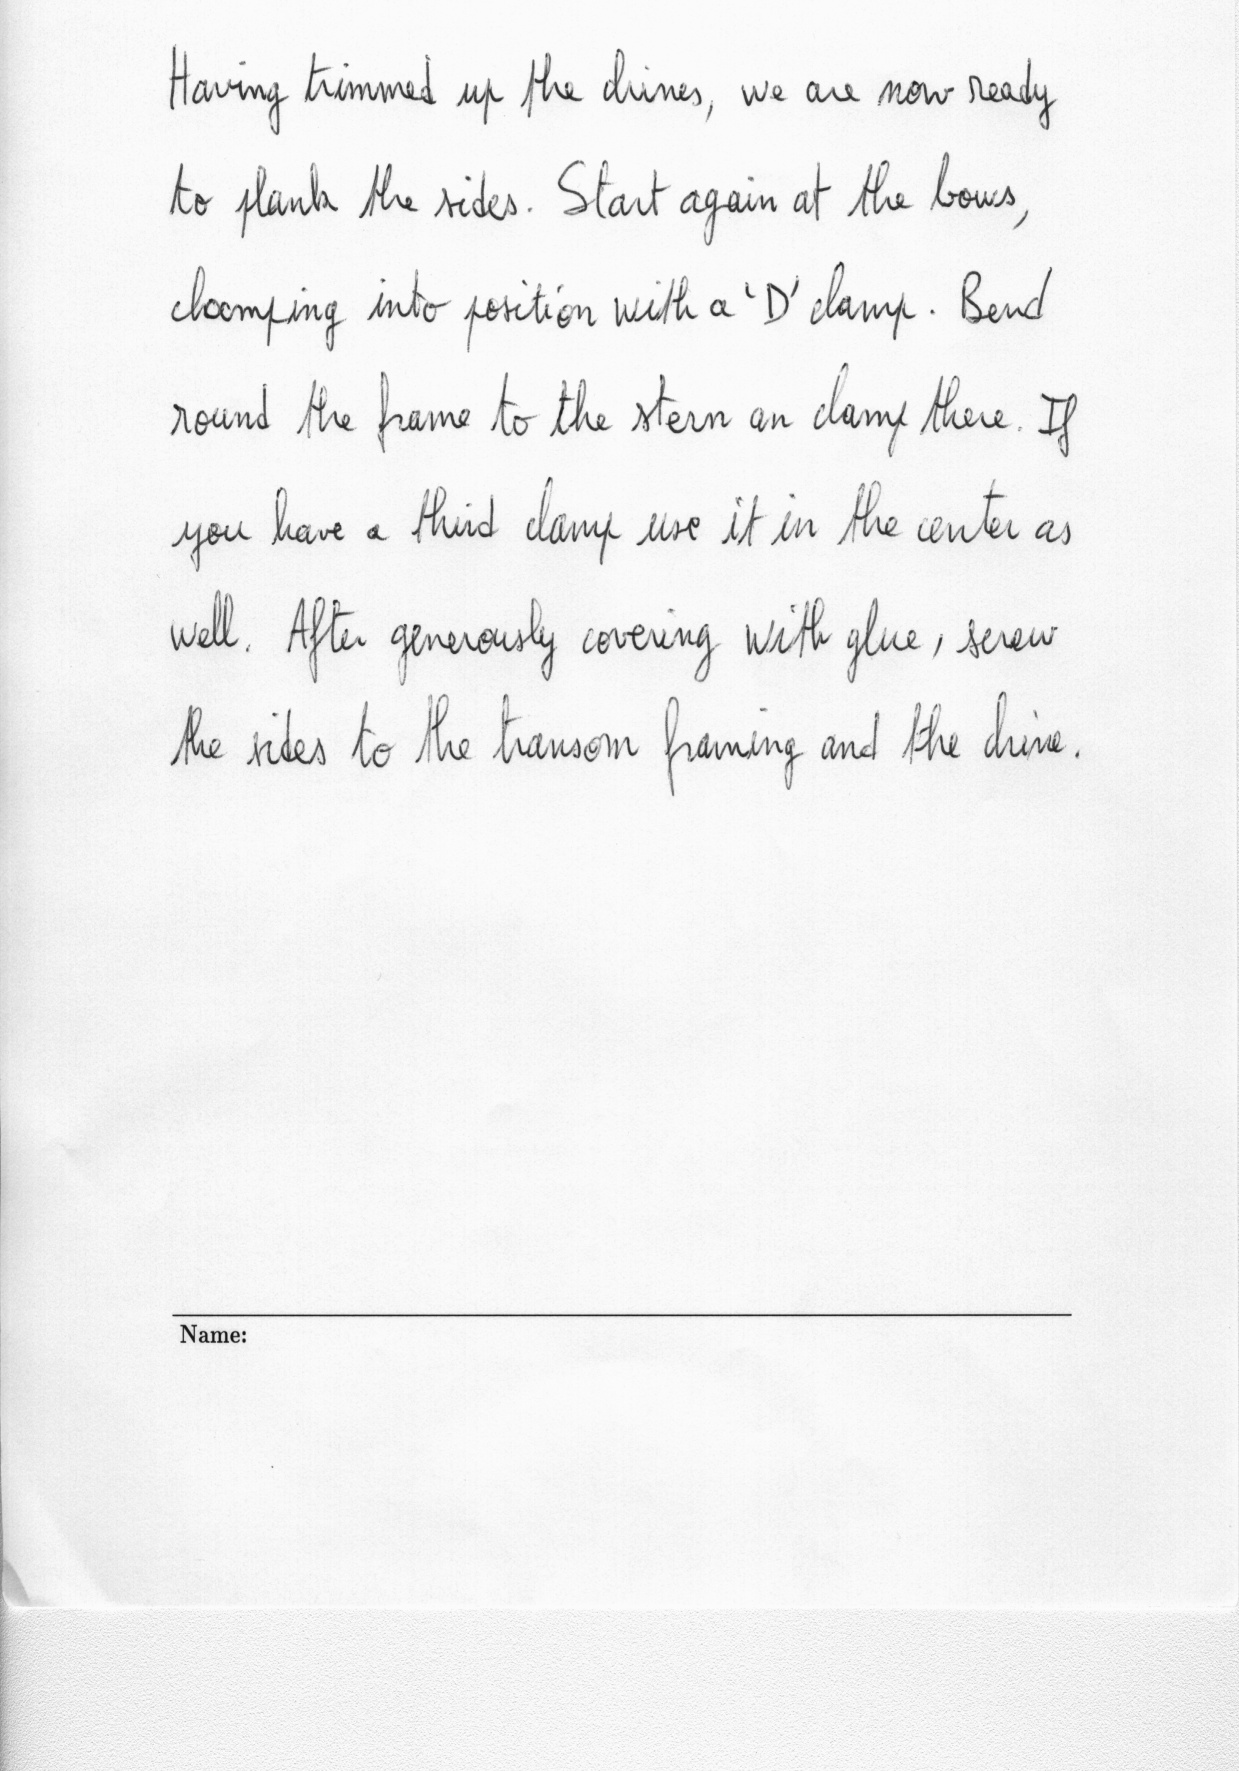 Having trimmed up the chines, we are now ready
to plank the sides. Start again at the bows,
clamping into position with a 'D' clamp. Bend
round the frame to the stern an clamp there. If
you have a third clamp use it in the center as
well. After generously covering with glue, screw
the sides to the transom framing and the chine.
Name: